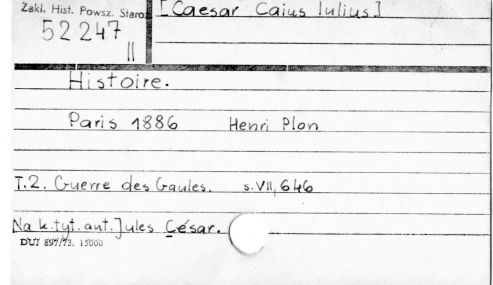 Zakł. Hist. Powsz. Staroż
[Caesar Caius Iulius.]
52 247
II
Histoire.
Paris 1886 Henri Plon
T.2. Guerre des Gaules. s. VII, 646
Na k. tyt. aut. Jules César.
DUJ 897/73. 15000